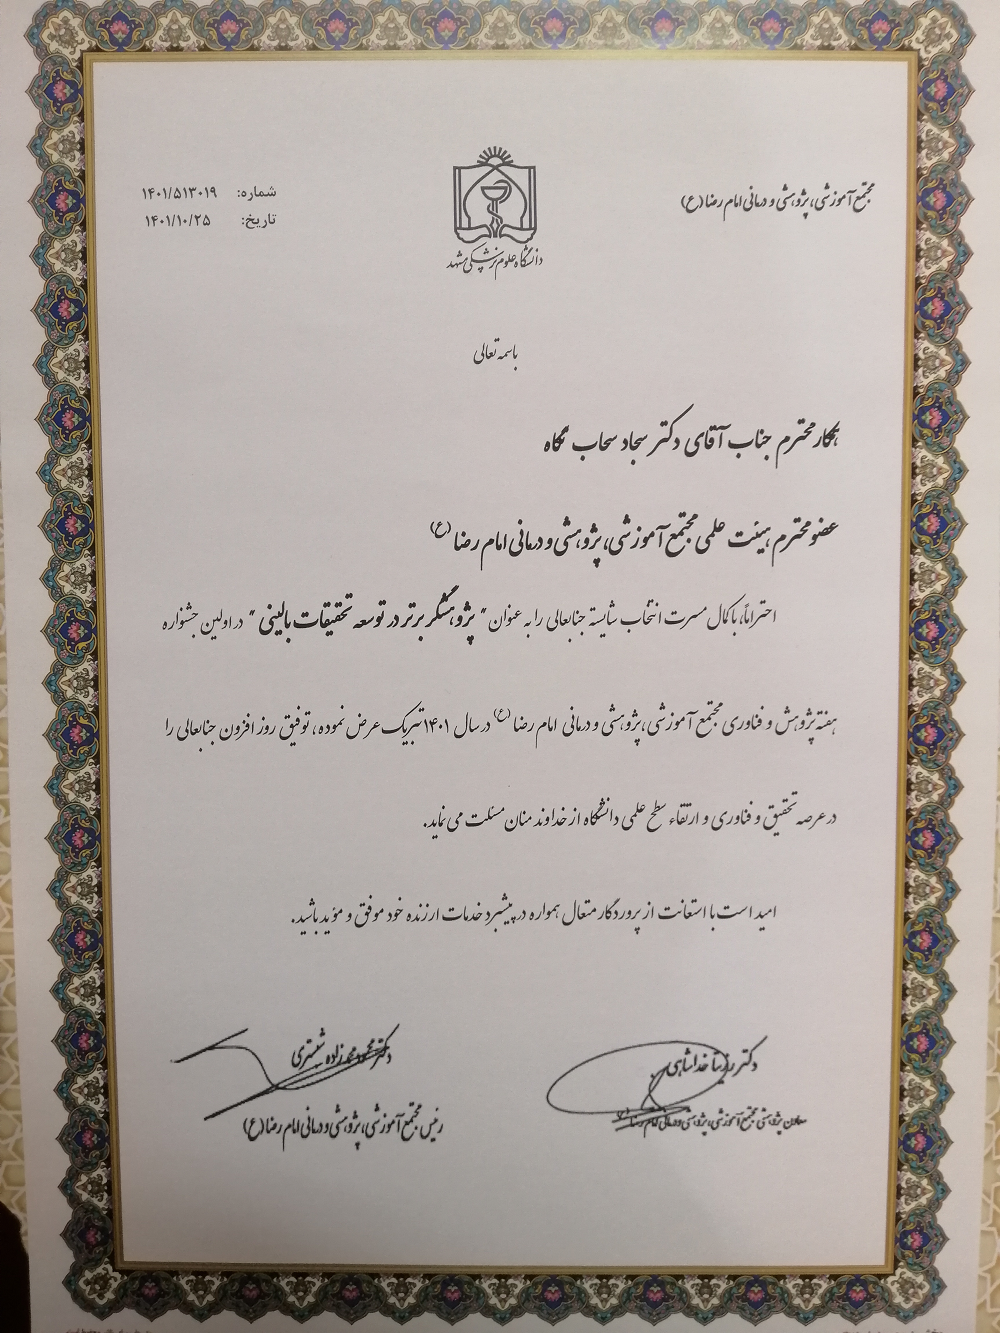 مجتمع آموزشی، پژوهشی و درمانی امام رضا (ع)
دانشگاه علوم پزشکی مشهد
شماره: ۱۴۰۱/۵۱۳۰۱۹
تاریخ: ۱۴۰۱/۱۰/۲۵
باسمه تعالی
همکار محترم جناب آقای دکتر سجاد سحاب نگاه
عضو محترم هیئت علمی مجتمع آموزشی، پژوهشی و درمانی امام رضا (ع)
احتراماً، با کمال مسرت انتخاب شایسته جنابعالی را به عنوان " پژوهشگر برتر در توسعه تحقیقات بالینی " در اولین جشنواره
هفته پژوهش و فناوری مجتمع آموزشی، پژوهشی و درمانی امام رضا (ع) در سال ۱۴۰۱ تبریک عرض نموده، توفیق روز افزون جنابعالی را
در عرصه تحقیق و فناوری و ارتقاء سطح علمی دانشگاه از خداوند منان مسئلت می نماید.
امید است با استعانت از پروردگار متعال همواره در پیشبرد خدمات ارزنده خود موفق و مؤید باشید.
دکتر روزیتا خداشاهی
معاون پژوهشی مجتمع آموزشی، پژوهشی و درمانی امام رضا (ع)
دکتر محمود محمدزاده شبستری
رئیس مجتمع آموزشی، پژوهشی و درمانی امام رضا (ع)